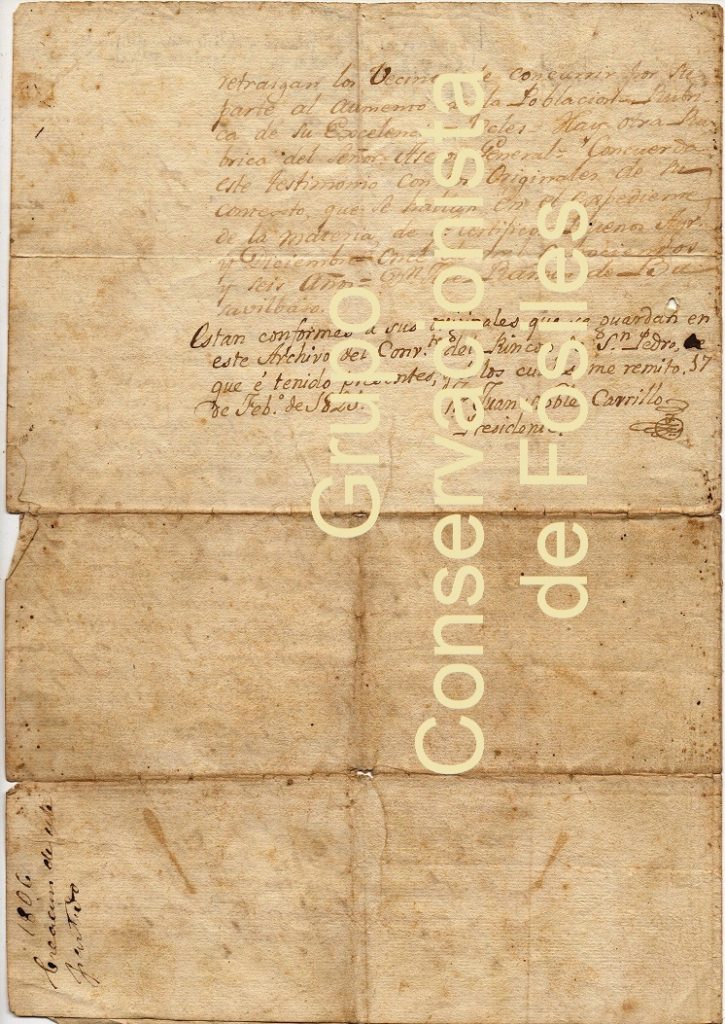 retraigan los Vecin de concurrir por su
parte al aumento la Poblacion = Rubri-
ca de su Excelenc = Hay otra Ru-
brica del Señor Asesor General = Concuerda
este testimonio con Originales de su
contexto, que se hallan en el expediente
de la materia, de certifico. Buenos Ayr.
y Diciembre de mil ochocientos
y seis Años = Ramon de Ba
savilbaso
Estan conformes a sus originales que se guardan en
este Archivo del Conv.to del Rincon de S.n Pedro,
que é tenido presentes, los me remito. 17
de Feb.o de Juan Carrillo
Presidente.
Grupo
Conservacionista
de Fosiles
1806
Creacion de este
partido